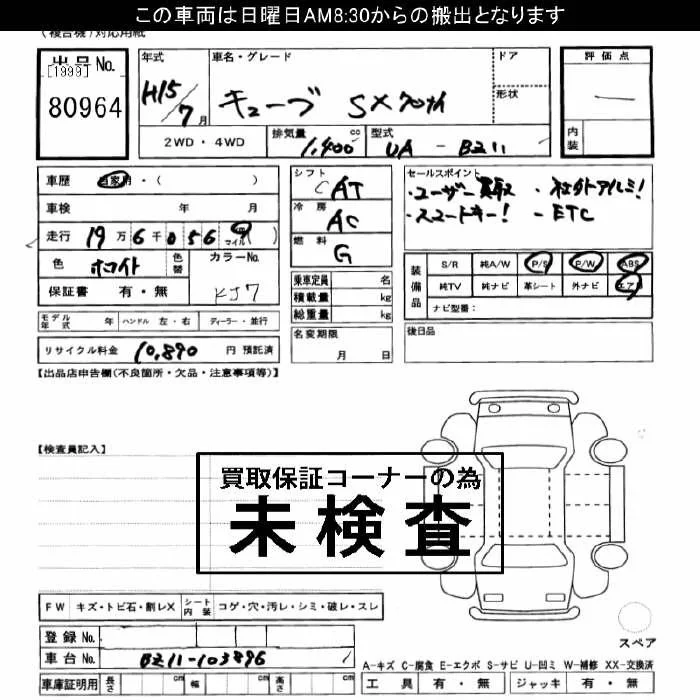 この車両は日曜日AM8:30からの搬出となります
(複合機)対応用紙
出品No. [1999] 80964
年式 H15/7月
車名・グレード キューブ SX 70th
ドア
形状
評価点 ―
内装
2WD・4WD
排気量 1,400 cc
型式 UA - BZ11
車歴 自家用・( )
車検 年 月
走行 19万6千056 km マイル ( )
色 ホワイト 色替 カラーNo. KJ7
保証書 有・無
シフト CAT
冷房 AC
燃料 G
セールスポイント
・ユーザー買取 ・社外アルミ!
・スマートキー! ・ETC
装備品 S/R 純A/W P/S P/W ABS
純TV 純ナビ 革シート 外ナビ エアB
ナビ型番:
乗車定員 名
積載量 kg
総重量 kg
モデル年式 年 ハンドル 左・右 ディーラー・並行
名変期限 月 日
後日品
リサイクル料金 10,890 円 預託済
【出品店申告欄(不良箇所・欠品・注意事項等)】
【検査員記入】
買取保証コーナーの為
未検査
FW キズ・トビ石・割レX シート内装 コゲ・穴・汚レ・シミ・破レ・スレ
スペア
登録No.
車台No. BZ11-103896
A-キズ C-腐食 E-エクボ S-サビ U-凹ミ W-補修 XX-交換済
車庫証明用 長さ cm 幅 cm 高さ cm
工具 有・無 ジャッキ 有・無